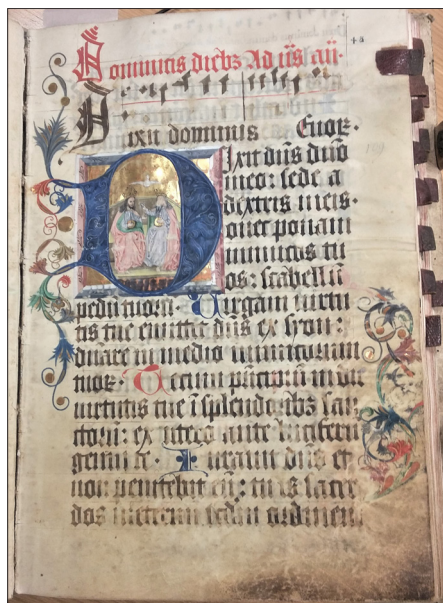 48
Dominicis diebz Ad us an.
Dixit dominus Euoꝛ.
Dixit dñs dño
meo: sede a
dextris meis.
Donec ponam
inimicos tu
os: scabellū
pedū tuorū. Uirgam virtu
tis tue emittet dñs ex syon:
dñare in medio inimicorum
tuoꝝ. Tecum pͥncipiū in die
virtutis tue ī splendoribz san
ctorū: ex utero ante luciferū
genui te. Iurauit dñs et
non penitebit eū: tu es sacer
dos in eternū scdm ordinem